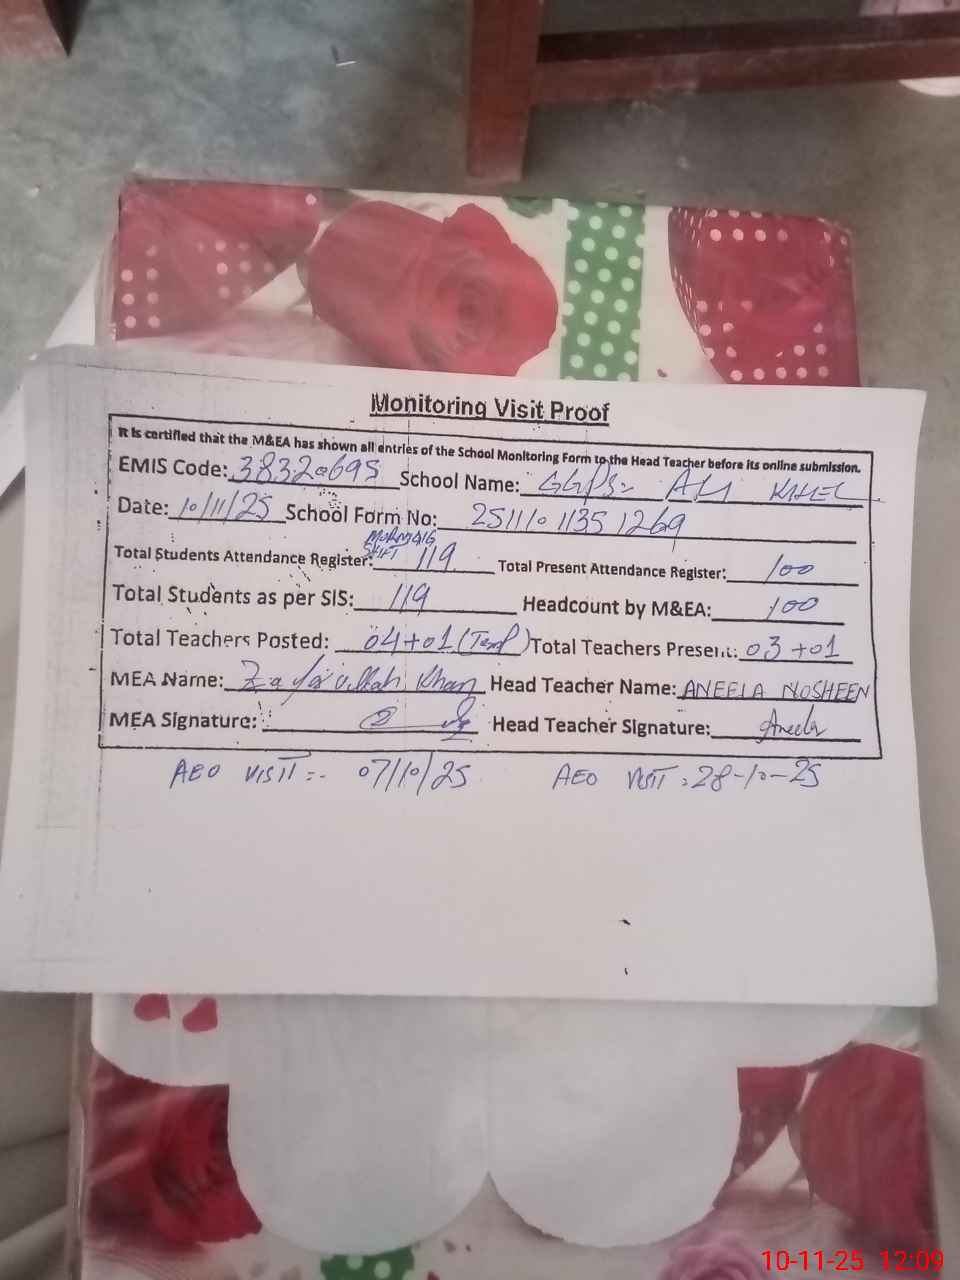 Monitoring Visit Proof
It is certified that the M&EA has shown all entries of the School Monitoring Form to the Head Teacher before its online submission.
EMIS Code: 38320695 School Name: GGPS: ALI KHEL
Date: 10/11/25 School Form No: 2511101135 1269
Total Students Attendance Register: MORNING SHIFT 119 Total Present Attendance Register: 100
Total Students as per SIS: 119 Headcount by M&EA: 100
Total Teachers Posted: 04+01 (Temp) Total Teachers Present: 03+01
MEA Name: Zafar ullah Khan Head Teacher Name: ANEELA NOSHEEN
MEA Signature: Head Teacher Signature: Aneela
AEO VISIT:- 07/10/25 AEO VISIT: 28-10-25
10-11-25 12:09